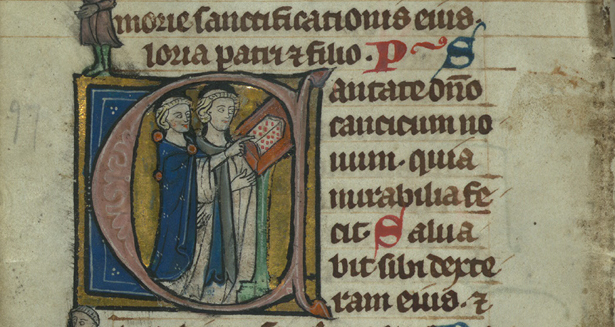 morie sanctificationis eius.
loria patri ⁊ filio. P S
C antate dño
canticum no
uum. quia
mirabilia fe
cit. Salua
uit sibi dexte
ram eius. ⁊